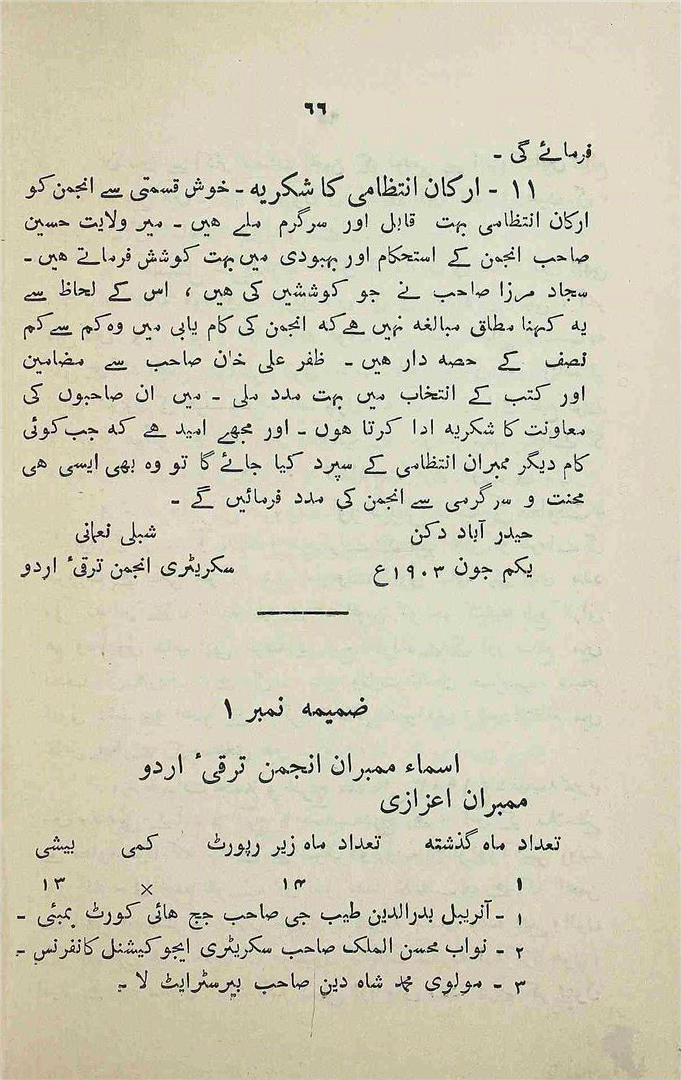 ٦٦
فرمائے گی ۔
١١ - ارکان انتظامی کا شکریہ ۔ خوش قسمتی سے انجمن کو
ارکان انتظامی بہت قابل اور سرگرم ملے ھیں ۔ میر ولایت حسین
صاحب انجمن کے استحکام اور بہبودی میں بہت کوشش فرماتے ھیں ۔
سجاد مرزا صاحب نے جو کوششیں کی ھیں ، اس کے لحاظ سے
یہ کہنا مطلق مبالغہ نہیں ھے کہ انجمن کی کام یابی میں وہ کم سے کم
نصف کے حصہ دار ھیں ۔ ظفر علی خان صاحب سے مضامین
اور کتب کے انتخاب میں بہت مدد ملی ۔ میں ان صاحبوں کی
معاونت کا شکریہ ادا کرتا ھوں ۔ اور مجھے امید ھے کہ جب کوئی
کام دیگر ممبران انتظامی کے سپرد کیا جائے گا تو وہ بھی ایسی ھی
محنت و سرگرمی سے انجمن کی مدد فرمائیں گے ۔
حیدر آباد دکن شبلی نعمانی
یکم جون ١٩٠٣ع سکریٹری انجمن ترقیٔ اردو
ضمیمہ نمبر ١
اسماء ممبران انجمن ترقیٔ اردو
ممبران اعزازی
تعداد ماہ گذشتہ تعداد ماہ زیر رپورٹ کمی بیشی
١ ١٤ × ١٣
١ - آنریبل بدرالدین طیب جی صاحب جج ھائی کورٹ بمبئی ۔
٢ - نواب محسن الملک صاحب سکریٹری ایجوکیشنل کانفرنس ۔
٣ - مولوی محمد شاہ دین صاحب بیرسٹرایٹ لا ۔